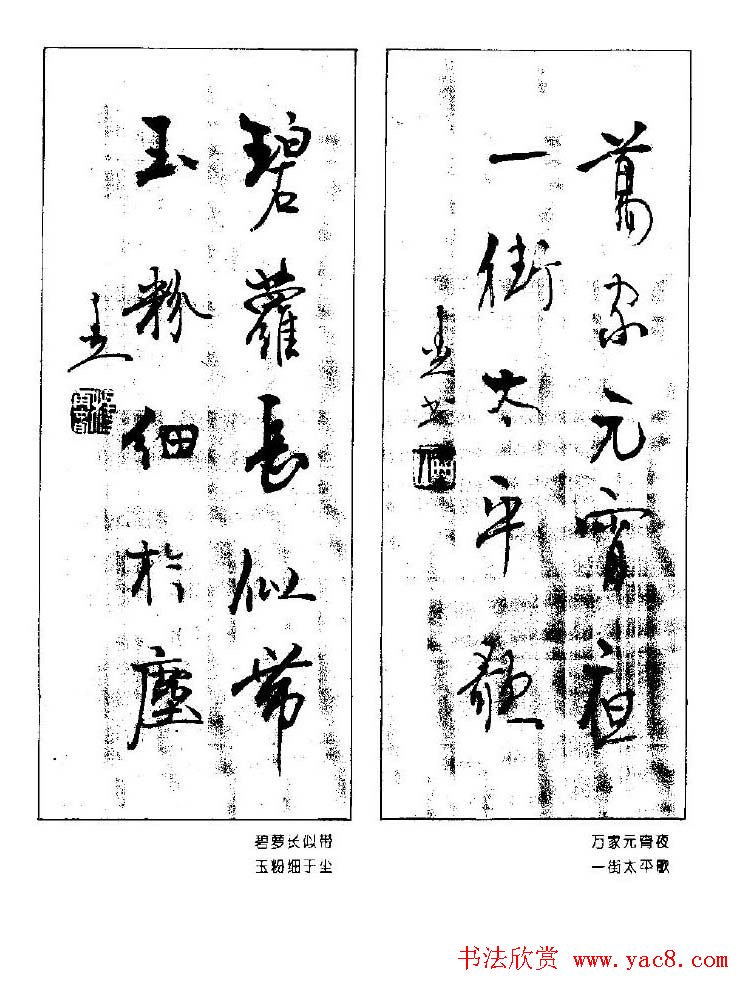 萬家元宵夜
一街太平歌
碧蘿長似帶
玉粉細於塵
万家元宵夜
一街太平歌
碧萝长似带
玉粉细于尘
书法欣赏 www.yac8.com